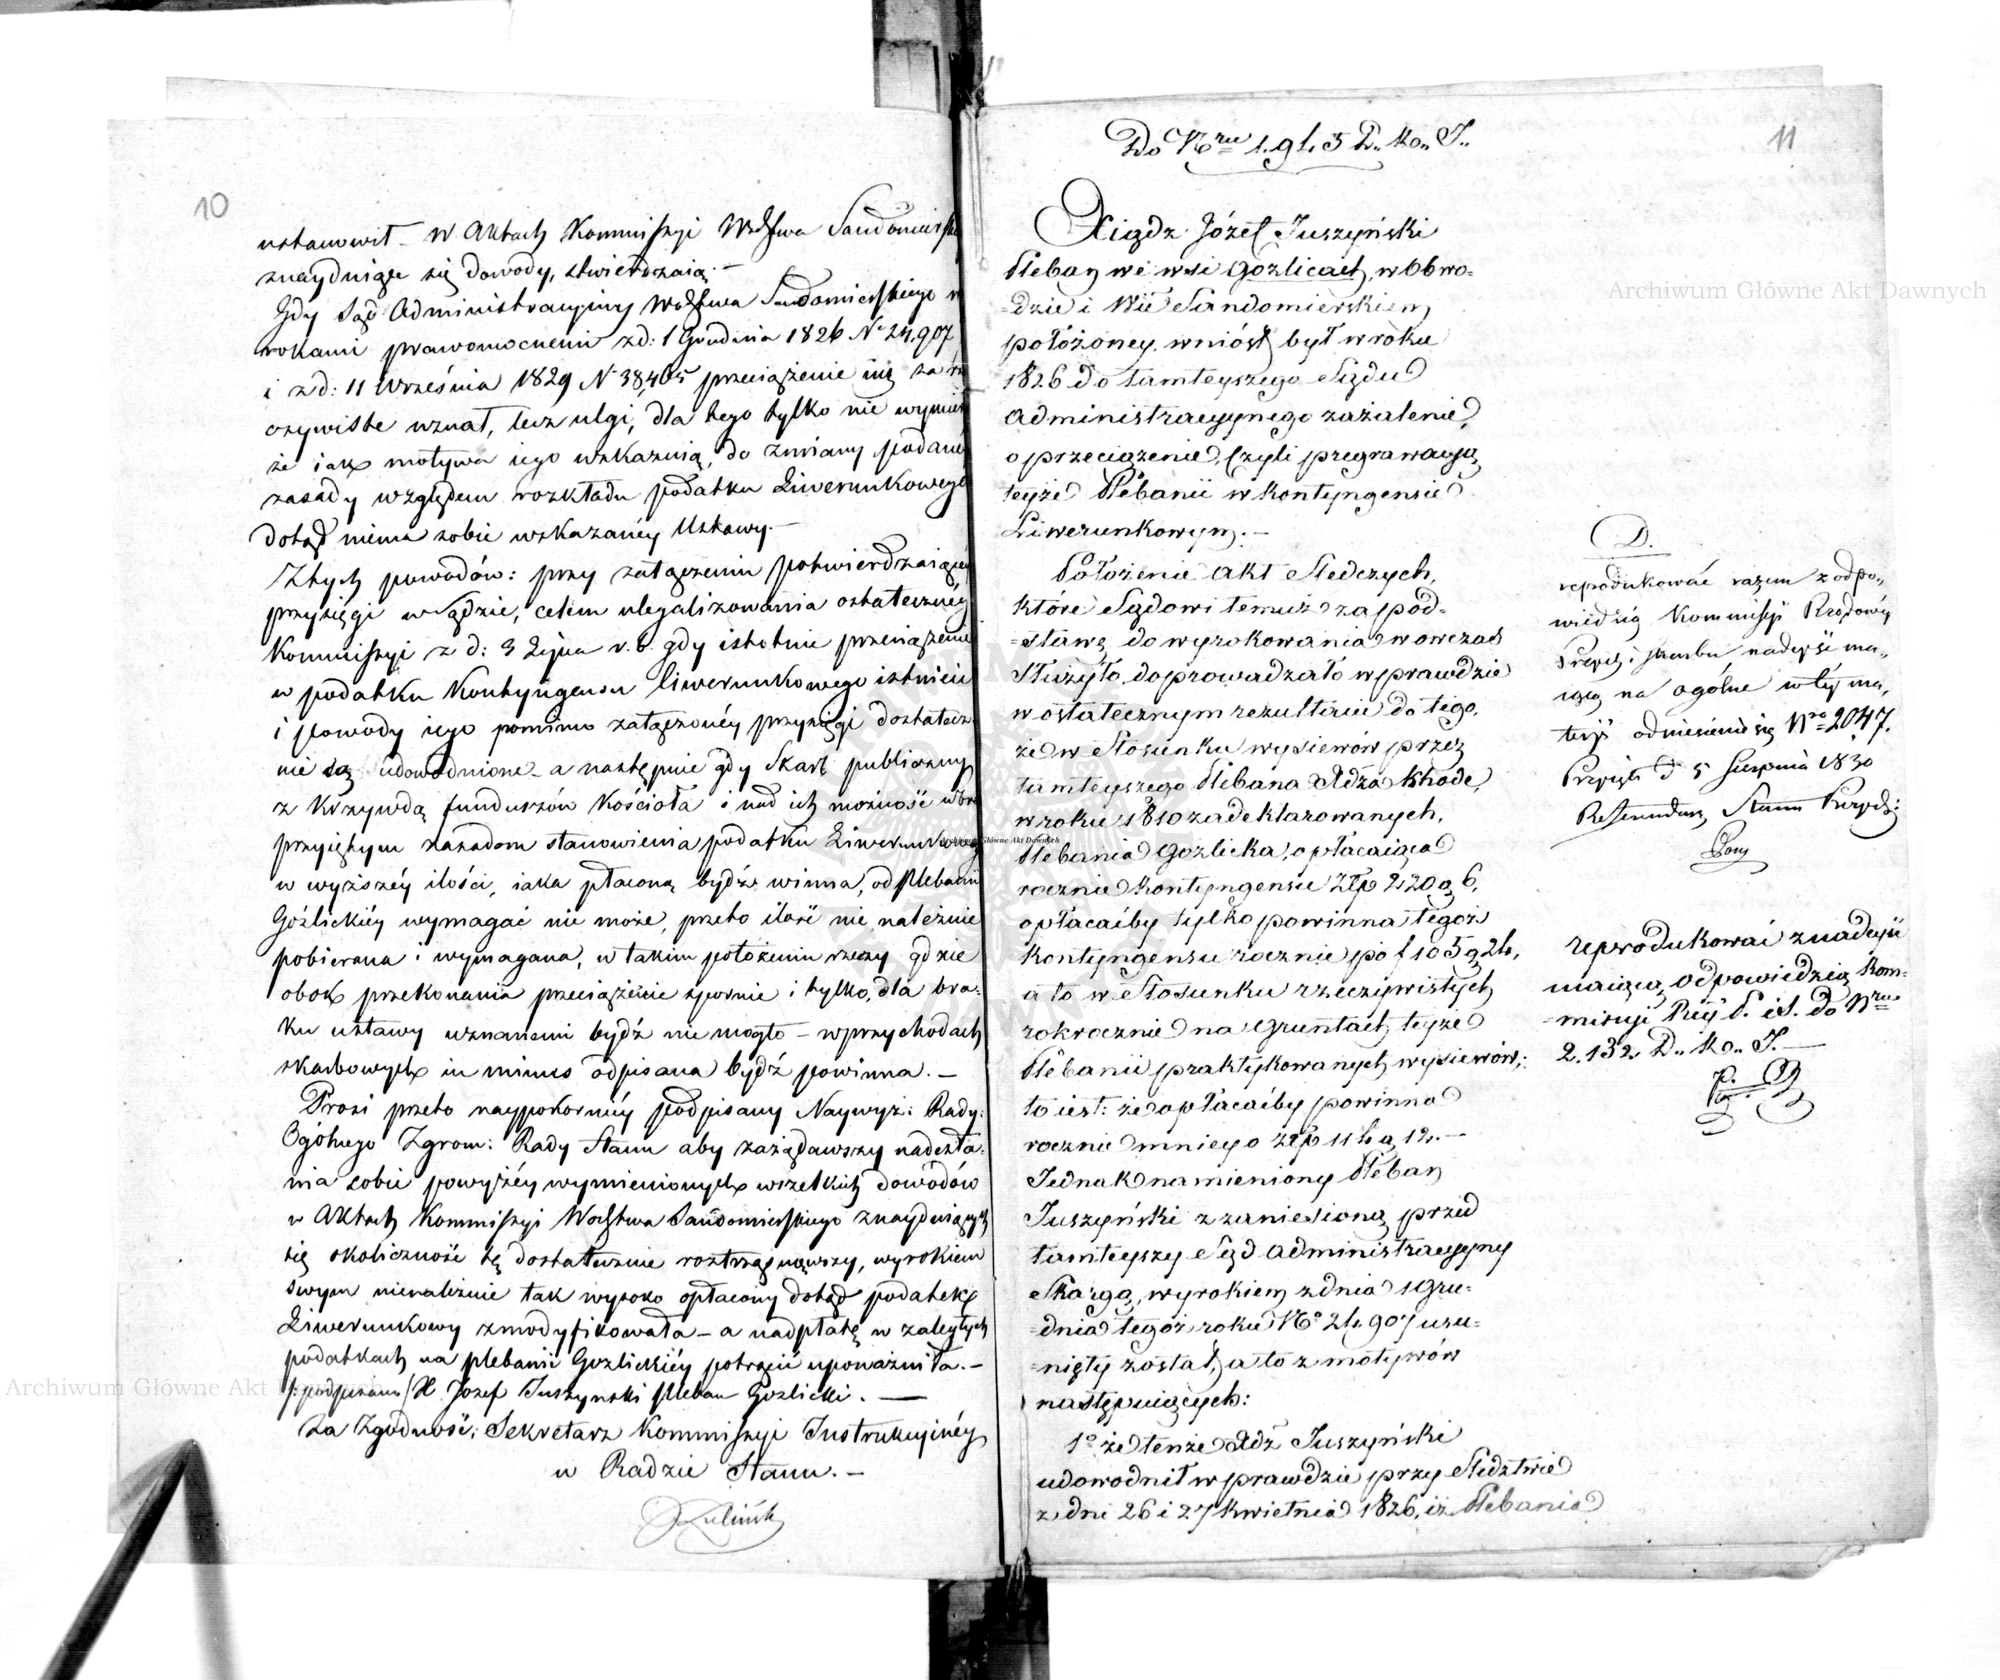 10
ustanowił – W Aktach Kommissyi Wdztwa Sandomiersk
znayduiące się dowody, stwierdzaią. –
Gdy Sąd Administracyiny Wodztwa Sandomierskiego w
rokami prawomocnemi z d: 1 Grudnia 1826 N° 24,907
i z d: 11 Września 1829 N 38,405 przeciążenie iuż za
oczywiste uznał, lecz ulgi, dla tego tylko nie wymie
że iak motywa iego wskazuią, do zmiany podaney
zasady względem rozkładu podatku Liwerunkowego
dotąd niema sobie wskazanéy Ustawy. –
Z tych powodów: przy załączeniu potwierdzaiącey
przysięgi w Sądzie, celem ulegalizowania ostateczney
Kommissyi z d: 3 Lipca r. b. gdy istotnie przeciążenie
w podatku Kontyngensu liwerunkowego istnieie
i powody iego pomimo załączonéy przysięgi dostatecz
nie są udowodnione – a następnie gdy Skarb publiczny
z krzywdą funduszów Kościoła i nad ich możność wbre
przyiętym zasadom stanowienia podatku Liwerunkowego
w wyższéy ilości, iaka płaconą bydź winna, od Plebanii
Goźlickiéy wymagać nie może, przeto ilość nie należnie
pobierana i wymagana, w takim położeniu rzeczy gdzie
obok przekonania przeciążenie spornie i tylko, dla bra-
ku ustawy uznanem bydź nie mogło – w przychodach
skarbowych in minus odpisana bydź powinna. –
Prosi przeto naypokorniéy podpisany Naywyż: Rady:
Ogólnego Zgrom: Rady Stanu aby zażądawszy nadesła-
nia sobie powyżéy wymienionych wszelkich dowodów
w Aktach Kommissyi Wodztwa Sandomierskiego znayduiących
się okoliczność tę dostatecznie roztrząsnąwszy, wyrokiem
swym nienależnie tak wysoko opłacony dotąd podatek
Liwerunkowy zmodyfikowała – a nadpłatę w zaległych
podatkach na plebanii Gozlickiéy potrącić upoważniła. –
/: podpisano / X Jozef Juszynski Pleban Gozlicki. –
Za Zgodność; Sekretarz Kommissyi Instrukcyinéy
w Radzie Stanu. –
11
Do Nru 1.945 D.. Ko.. J..
Xiądz Józef Juszyński
Pleban we wsi Gozlicach, w Obwo-
-dzie i Wie Sandomierskiem
położoney. wniósł był w roku
1826 do tamteyszego Sądu
Administracyynego zażalenie,
o przeciążenie, czyli pregrawacyą
teyże Plebanii w kontyngensie
Liwerunkowym. –
Położenie Akt Sledczych,
które Sądowi temuż za pod-
-stawę do wyrokowania wowczas
służyło, doprowadzało wprawdzie
w ostatecznym rezultacie do tego,
że w Stosunku wysiewów przez
tamteyszego Plebana Xdza Khode,
w roku 1810 zadeklarowanych,
Plebania Gozlicka, opłacaiąca
rocznie kontyngensu Złp 220 g 6,
opłacaćby tylko powinna tegoż
kontyngensu rocznie po f 105 g 24,
a to w Stosunku rzeczywistych
rokrocznie na gruntach teyże
Plebanii praktykowanych wysiewów;
to iest: że opłacaćby powinna
rocznie mniey o złp 114 g 12. –
Jednak namieniony Pleban
Juszyński z zaniesioną przed
tamteyszy Sąd Administracyyny
Skargą, wyrokiem z dnia 1 Gru-
-dnia tegoż roku N° 24,907 usu-
-nięty został, a to z motywów
następuiących:
1° że tenże Xdz Juszyński
udowodnił wprawdzie przy śledztwie
z dni 26 i 27 kwietnia 1826, iż Plebania
D.
reprodukować razem z odpo-
wiedzią Kommissyi Rządowéy
Przych: i Skarbu nadeyść ma-
iącą na ogólne w téy ma-
teryi odniesienie się Nro 2047.
Przyięto d 5 Sierpnia 1830
Referendarz Stanu
reprodukować z nadeyść
maiącą odpowiedzią Kom-
-missyi Rząd P. i S. do Nru
2.132 D.. Ko.. J. –
Archiwum Główne Akt Dawnych
Archiwum Główne Akt Dawnych
Archiwum Główne Akt Dawnych